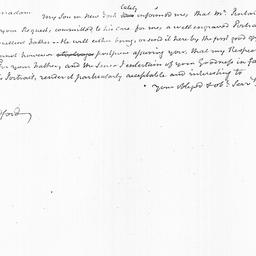 Madam
My Son in New York lately informed me, that Mr.
your Request, committed to his Care for me, a well engraved
excellent Father -- He will either bring or send it here by the first good
cannot however postpone assuring you, that my Respect
for your Father, and the sense I entertain of your Goodness in
his Portrait, render it particularly acceptable and interesting to
your obliged & obt. Serv